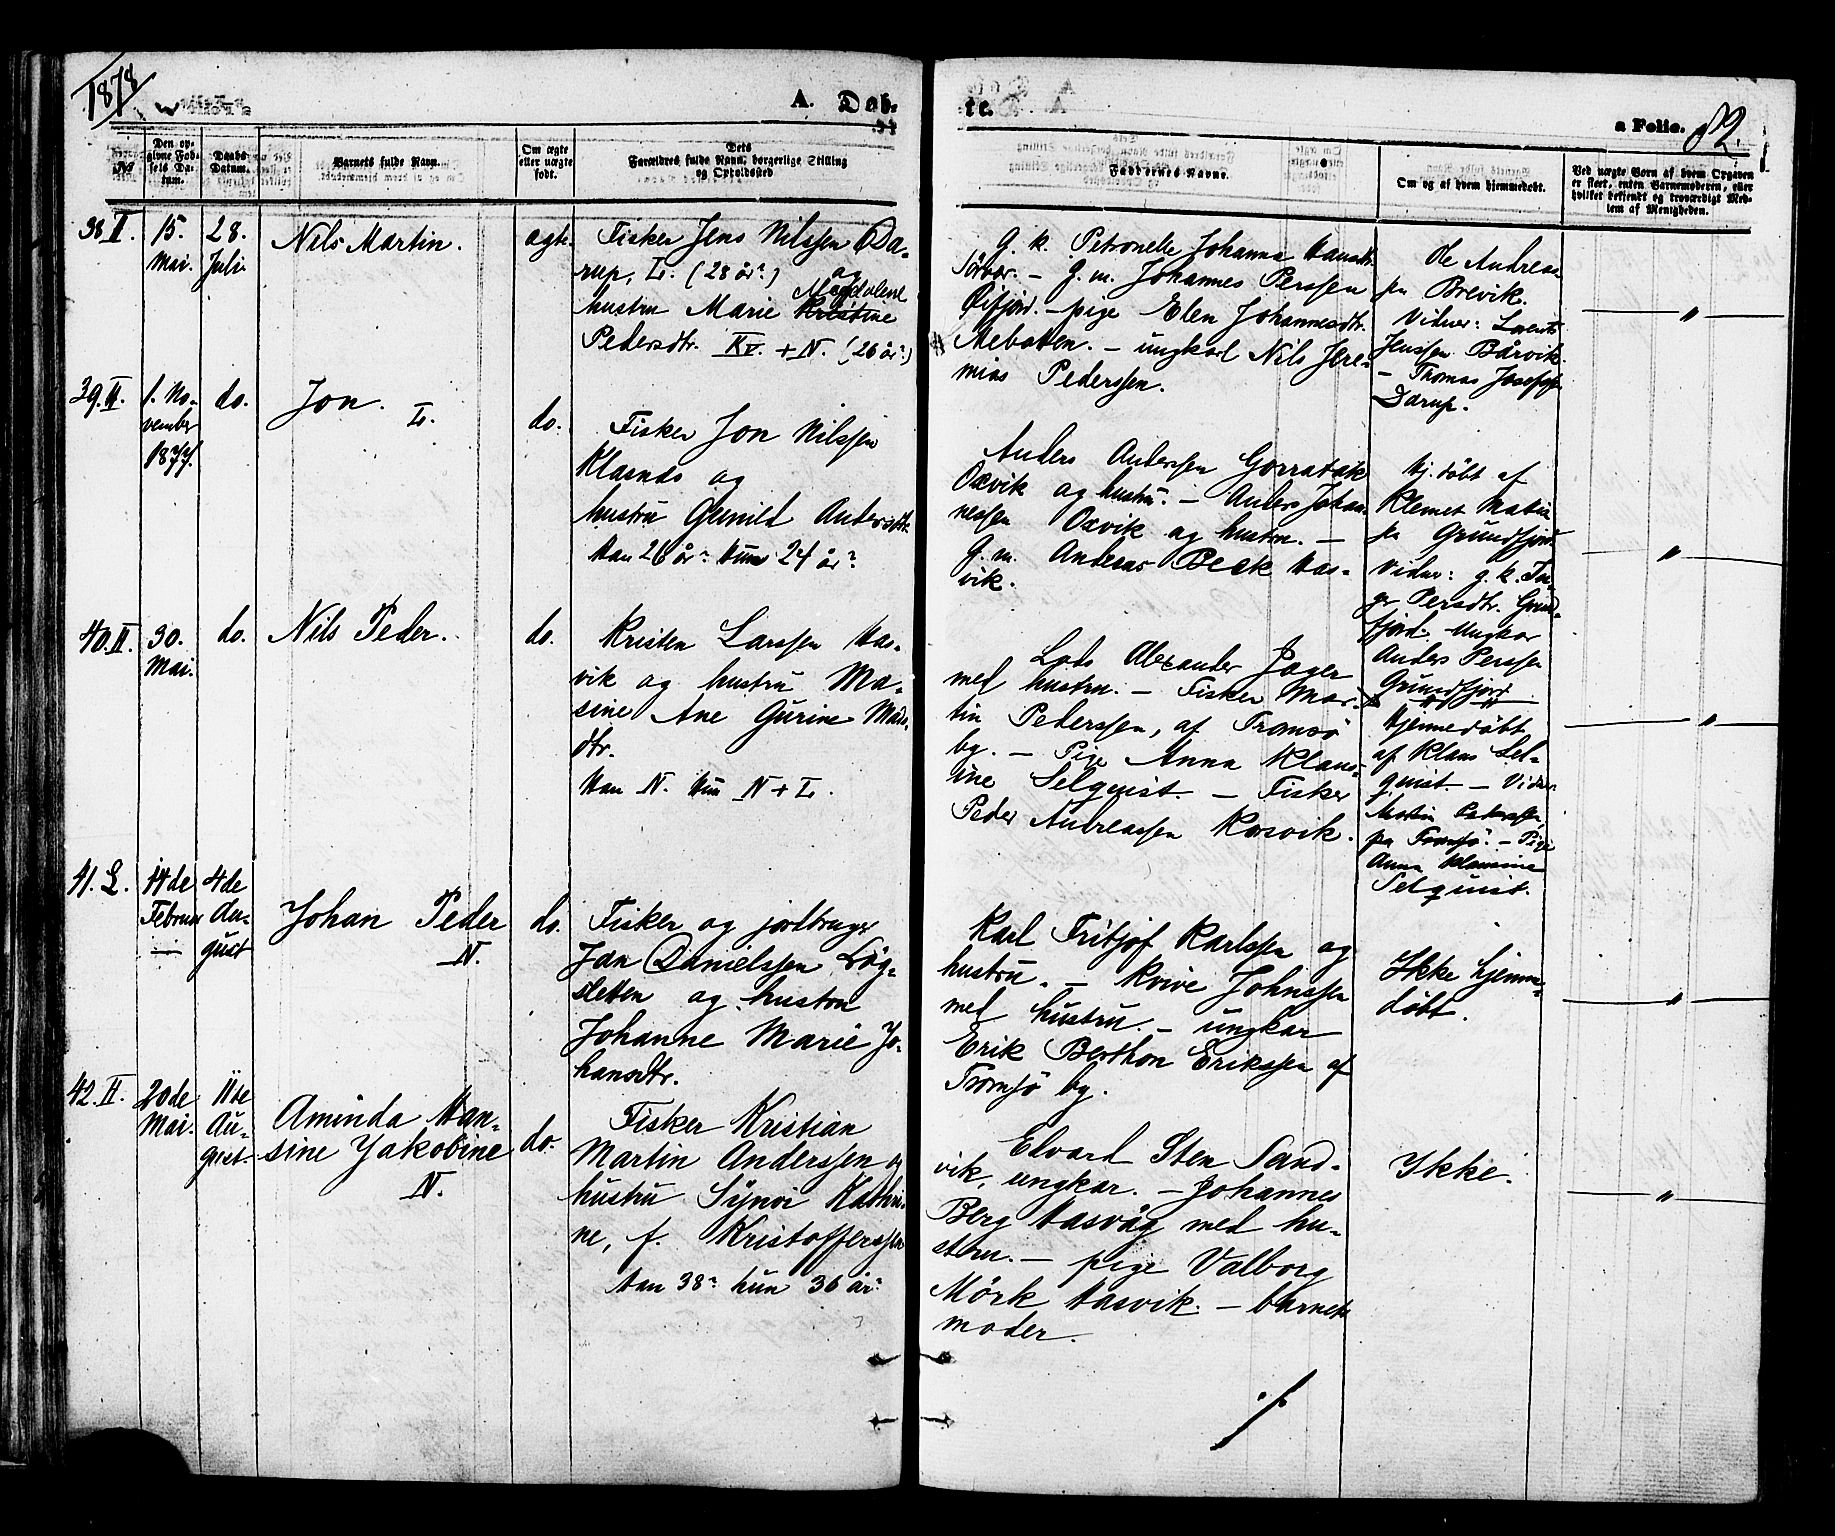 1878
A. Døb-
te.
a Folio. 82.
N
Den op-
givne Fød-
sels Da-
tum.
Daabs
Datum.
Barnets fulde Navn.
Om ægte
eller uægte
født.
Dets
Forældres fulde Navn, borgerlige Stilling
og Opholdssted
Faddernes Navne.
Om og af hvem hjemmedøbt.
Ved uægte Børn af hvem Opgaven
er skeet, enten Barnemoderen, eller
hvilket bekjendt og troværdigt Med-
lem af Menigheden.
38 H.
15.
Mai.
28.
Juli
Nils Martin.
ægte.
Fisker Jens Nilssen Da-
rup, L. (28 år?) og
hustru Marie Kristine Magdalene
Pedersdtr. Kv. + N. (26 år?)
G. k. Petronelle Johanna Hansdtr.
Sörvær. – G. m. Johannes Perssen
Öifjord. – pige Elen Johannesdtr.
Mebotten. – ungkarl Nils Jere-
mias Pederssen.
Ole Andreas-
Brevik.
Vidner: Lorents
Jenssen Bårvik.
– Thomas Josefss.
Darup.
"
39. H.
1. No-
vember
1877.
do.
Jon.
L.
do.
Fisker Jon Nilssen
Klasnes og
hustru Gunild Andersdtr.
Han 26 år? Hun 24 år?
Anders Anderssen
Oxvik og hustru. – Anders Johan-
nessen Oxvik og hustru. –
G. m. Andreas Beck Has-
vik.
Hj. döbt af
Klemet
fra Grundfjord
Vidner: g. k. In-
ger Persdtr. Grund-
fjord. Ungkar
Anders Perssen
Grundfjord
"
40. H.
30.
Mai.
do.
Nils Peder.
do.
Kristen Larssen Has-
vik og hustru Ma-
sine Ane Gurine Mads-
dtr.
Han N. Hun N + L.
Lods Alexander Jager
med hustru. – Fisker Mar-
tin Pederssen, af Tromsö
by. – Pige Anna Klau-
sine Selquist – Fisker
Peder Andreassen Korsvik.
Hjemmedöbt
af Klaus Sel-
quist – Vidner
Martin Pederssen,
fra Tromsö. – Pige
Anna Klausine
Selquist.
"
41. L.
14de
Februar
4de
Au-
gust
Johan Peder
N.
do.
Fisker og jordbruger
Jan Danielssen Lög-
sletten og hustru
Johanne Marie Jo-
hansdtr.
Karl Fritjof Karlssen og
hustru. – Johnssen
med hustru. – ungkar
Erik Berthon Erikssen af
Tromsö by.
Ikke hjemme-
döbt.
"
42. H.
20de
Mai.
11de
Au-
gust.
Aminda Han-
sine Jakobine
N.
do.
Fisker Kristian
Martin Anderssen og
hustru Synöi Kathri-
ne, f. Kristofferssen
Han 38? hun 36 år?
Edvard Sten Sand-
vik, ungkar. – Johannes
Berg Hasvåg med hu-
stru. – pige Valborg
Mörk Hasvik. – barnets
moder.
Ikke.
"
./.